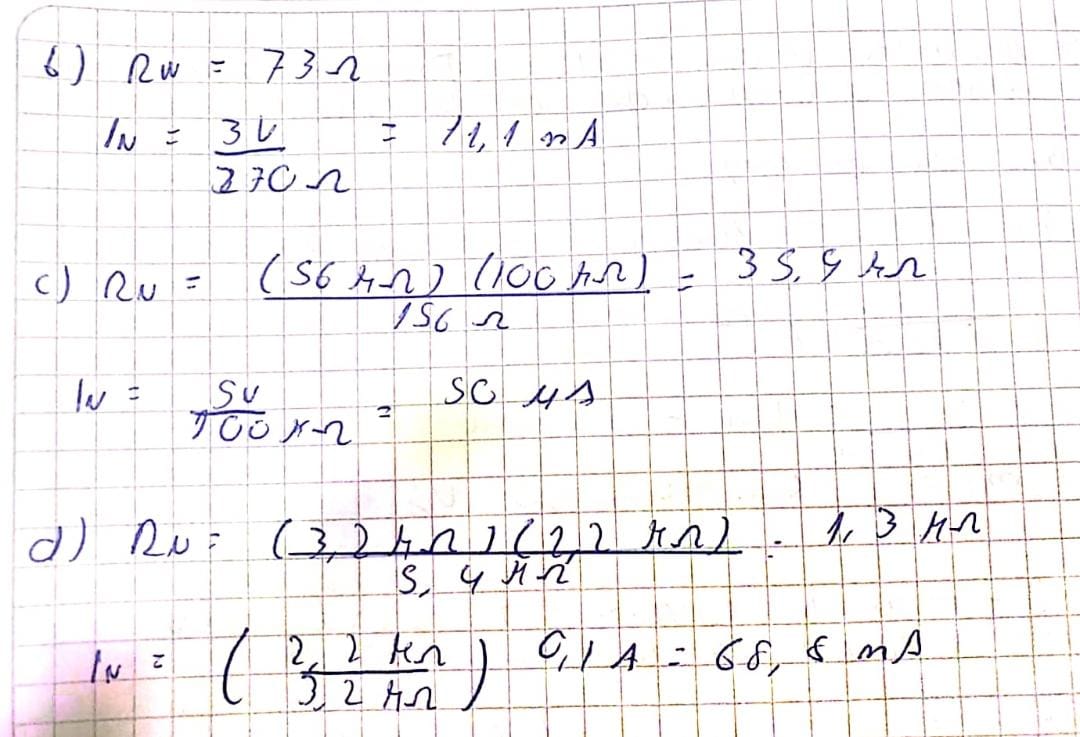 b) RN = 73 Ω
IN = 3V / 270 Ω = 11,1 mA
c) RN = (56 kΩ) (100 kΩ) / 156 Ω = 35,9 kΩ
IN = 5V / 100 kΩ = 50 μA
d) RN = (3,2 kΩ) (2,2 kΩ) / 5,4 kΩ = 1,3 kΩ
IN = (2,2 kΩ / 3,2 kΩ) 0,1 A = 68,8 mA